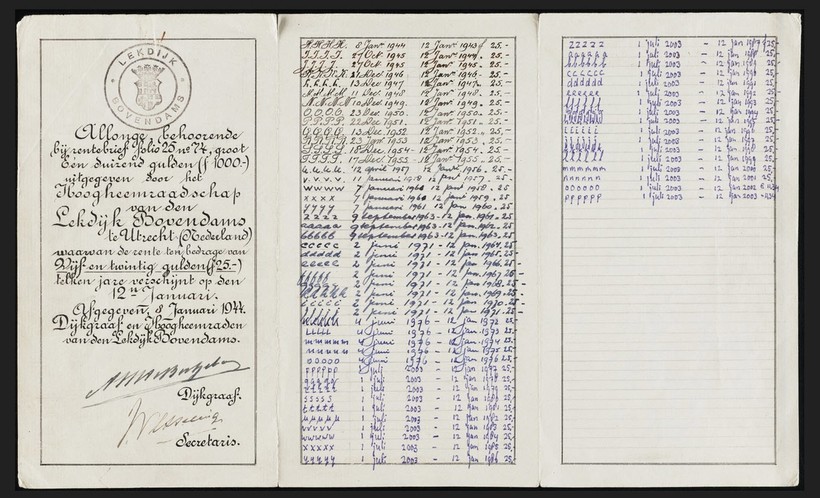 LEKDIJK
BOVENDAMS
Allonge, behoorende
bij rentebrief folio 25 no 74, groot
Een duizend gulden (ƒ 1000.-)
uitgegeven door het
Hoogheemraadschap
van den
Lekdijk Bovendams
te Utrecht (Nederland)
waarvan de rente ten bedrage van
Vijf en twintig gulden (ƒ 25.-)
telken jare verschijnt op den
12en Januari.
Afgegeven, 8 Januari 1944.
Dijkgraaf en Hoogheemraden
van den Lekdijk Bovendams.
Dijkgraaf.
Secretaris.
H.H.H.H. 8 Jan. 1944 12 Jan. 1943 25.-
I.I.I.I. 27 Oct. 1945 12 Jan. 1944. 25.-
J.J.J.J. 27 Oct. 1945 12 Jan. 1945. 25.-
K.K.K.K. 21 Dec. 1946 12 Jan. 1946. 25.-
L.L.L.L. 13 Dec. 1947 12 Jan. 1947. 25.-
M.M.M.M. 11 Dec. 1948 12 Jan. 1948. 25.-
N.N.N.N. 10 Dec. 1949. 12 Jan. 1949. 25.-
O.O.O.O. 23 Dec. 1950. 12 Jan. 1950. 25.-
P.P.P.P. 22 Dec. 1951. 12 Jan. 1951. 25.-
Q.Q.Q.Q. 13 Dec. 1952 12 Jan. 1952. 25.-
23 Jan. 1953 12 Jan. 1953. 25.-
18 Dec. 1954 12 Jan. 1954. 25.-
17 Dec. 1955 12 Jan. 1955. 25.-
u.u.u.u. 12 april 1957 12 Jan. 1956. 25.-
v.v.v.v. 11 januari 1958 12 jan 1957. 25.-
wwww 7 januari 1960 12 jan 1958. 25.
xxxx 7 januari 1960 12 jan. 1959. 25.
yyyy 7 januari 1961 12 jan. 1960. 25.-
zzzz 9 September 1963 - 12 jan. 1961. 25
aaaaa 9 September 1963 - 12 jan. 1962. 25.-
bbbbb 9 September 1963 - 12 jan. 1963. 25.-
ccccc 2 juni 1971 - 12 jan. 1964. 25.-
ddddd 2 juni 1971 - 12 jan. 1965. 25.-
eeeee 2 juni 1971 - 12 jan. 1966. 25.-
fffff 2 juni 1971 - 12 jan. 1967. 25.-
2 juni 1971 - 12 jan. 1968. 25.-
hhhhh 2 juni 1971 - 12 jan. 1969. 25.-
iiiii 2 juni 1971 - 12 jan. 1970. 25.-
2 juni 1971 - 12 jan. 1971. 25.-
kkkkk 4 juni 1976 - 12 jan 1972 25.-
lllll 4 juni 1976 - 12 jan 1973 25.-
mmmmm 4 juni 1976 - 12 jan 1974 25.-
nnnnn 4 juni 1976 - 12 jan 1975 25.-
ooooo 4 juni 1976 - 12 jan 1976 25.-
ppppp 1 juli 2003 - 12 jan 1977 25.-
qqqqq 1 juli 2003 - 12 jan 1978 25.-
rrrrr 1 juli 2003 - 12 jan 1979 25.-
sssss 1 juli 2003 - 12 jan 1980 25.-
ttttt 1 juli 2003 - 12 jan 1981 25.-
uuuuu 1 juli 2003 - 12 jan 1982 25.-
vvvvv 1 juli 2003 - 12 jan 1983 25.-
wwwww 1 juli 2003 - 12 jan 1984 25.-
xxxxx 1 juli 2003 - 12 jan 1985 25.-
yyyyy 1 juli 2003 - 12 jan 1986 25.-
zzzzz 1 juli 2003 - 12 jan 1987 25.-
aaaaaa 1 juli 2003 - 12 jan 1988 25.-
bbbbbb 1 juli 2003 - 12 jan 1989 25.-
cccccc 1 juli 2003 - 12 jan 1990 25.-
dddddd 1 juli 2003 - 12 jan 1991 25.-
eeeeee 1 juli 2003 - 12 jan 1992 25.-
ffffff 1 juli 2003 - 12 jan 1993 25.-
1 juli 2003 - 12 jan 1994 25.-
hhhhhh 1 juli 2003 - 12 jan 1995 25.-
iiiiii 1 juli 2003 - 12 jan 1996 25.-
1 juli 2003 - 12 jan 1997 25.-
1 juli 2003 - 12 jan 1998 25.-
llllll 1 juli 2003 - 12 jan 1999 25.-
mmmmmm 1 juli 2003 - 12 jan 2000 25.-
nnnnnn 1 juli 2003 - 12 jan 2001 25.-
oooooo 1 juli 2003 - 12 jan 2002
pppppp 1 juli 2003 - 12 jan 2003